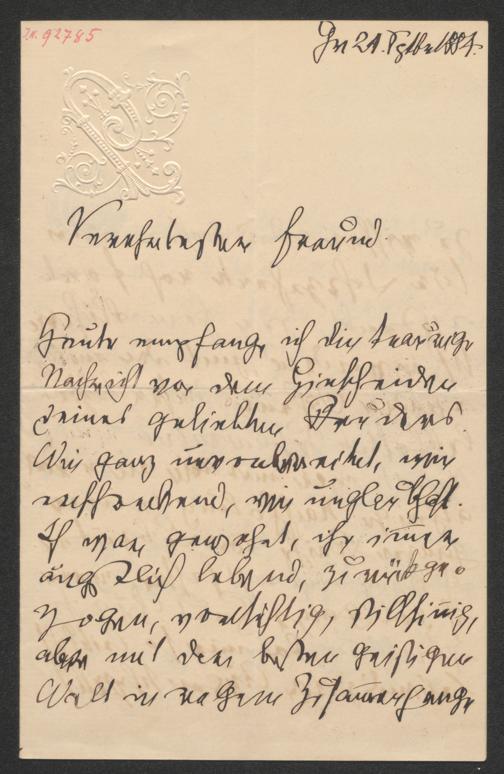 IN. 92785
Gr 21. Sptbr 1884.
Verehrtester Freund.
Heute empfange ich die traurige
Nachricht von dem Hinscheiden
Deines geliebten Bruders.
Wie ganz unvorbereitet, wie
wie unglaublich.
Ich war gewohnt, ihn immer
ängstlich lebend, zurückge-
zogen, vorsichtig, stillsinnig,
aber mit der besten geistigen
Welt in regem Zusammenhange